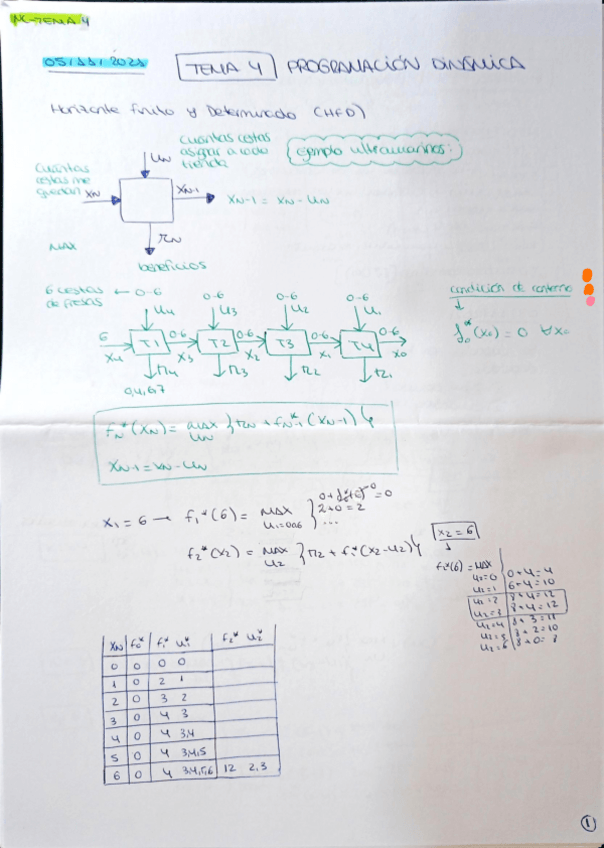 MC-TEMA 4
05/11/2021
TEMA 4 PROGRAMACIÓN DINÁMICA
Horizonte finito y Determinado (HFD)
cuántas cestas
asignar a cada
tienda
Ejemplo ultramarinos:
cuántas
cestas me
quedan
uN
xN
xN-1
xN-1 = xN - uN
rN
MAX
beneficios
6 cestas
de fresas
← 0-6
0-6
0-6
0-6
u4
u3
u2
u1
6
x4
T1
0-6
x3
T2
0-6
x2
T3
0-6
x1
T4
0-6
x0
r4
r3
r2
r1
condición de contorno
↓
f0*(x0) = 0 ∀x0
fN*(xN) = MAX { rN + fN-1*(xN-1) }
uN
xN-1 = xN - uN
x1 = 6 → f1*(6) = MAX
u1=0a6
2+0=2
...
f2*(x2) = MAX { r2 + f1*(x2-u2) }
u2
x2 = 6
↓
f2*(6) = MAX
u2=0 0+4=4
u2=1 6+4=10
u2=2 8+4=12
u2=3 8+4=12
u2=4 8+3=11
u2=5 8+2=10
u2=6 8+0=8
xN f0* f1* u1* f2* u2*
0 0 0 0
1 0 2 1
2 0 3 2
3 0 4 3
4 0 4 3,4
5 0 4 3,4,5
6 0 4 3,4,5,6 12 2,3
1